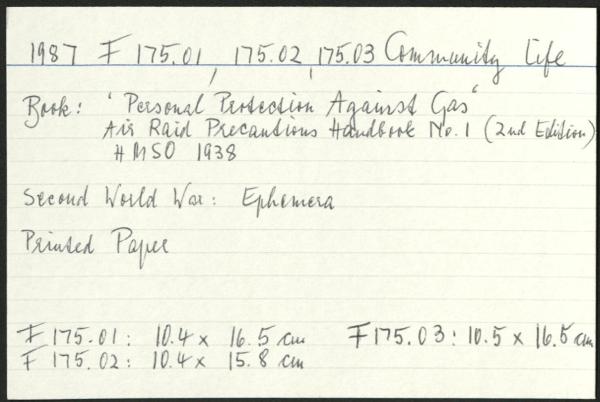 1987 F 175.01, 175.02, 175.03 Community Life
Book: 'Personal Protection Against Gas'
Air Raid Precautions Handbook No. 1 (2nd Edition)
HMSO 1938
Second World War: Ephemera
Printed Paper
F 175.01: 10.4 x 16.5 cm F 175.03: 10.5 x 16.5 cm
F 175.02: 10.4 x 15.8 cm